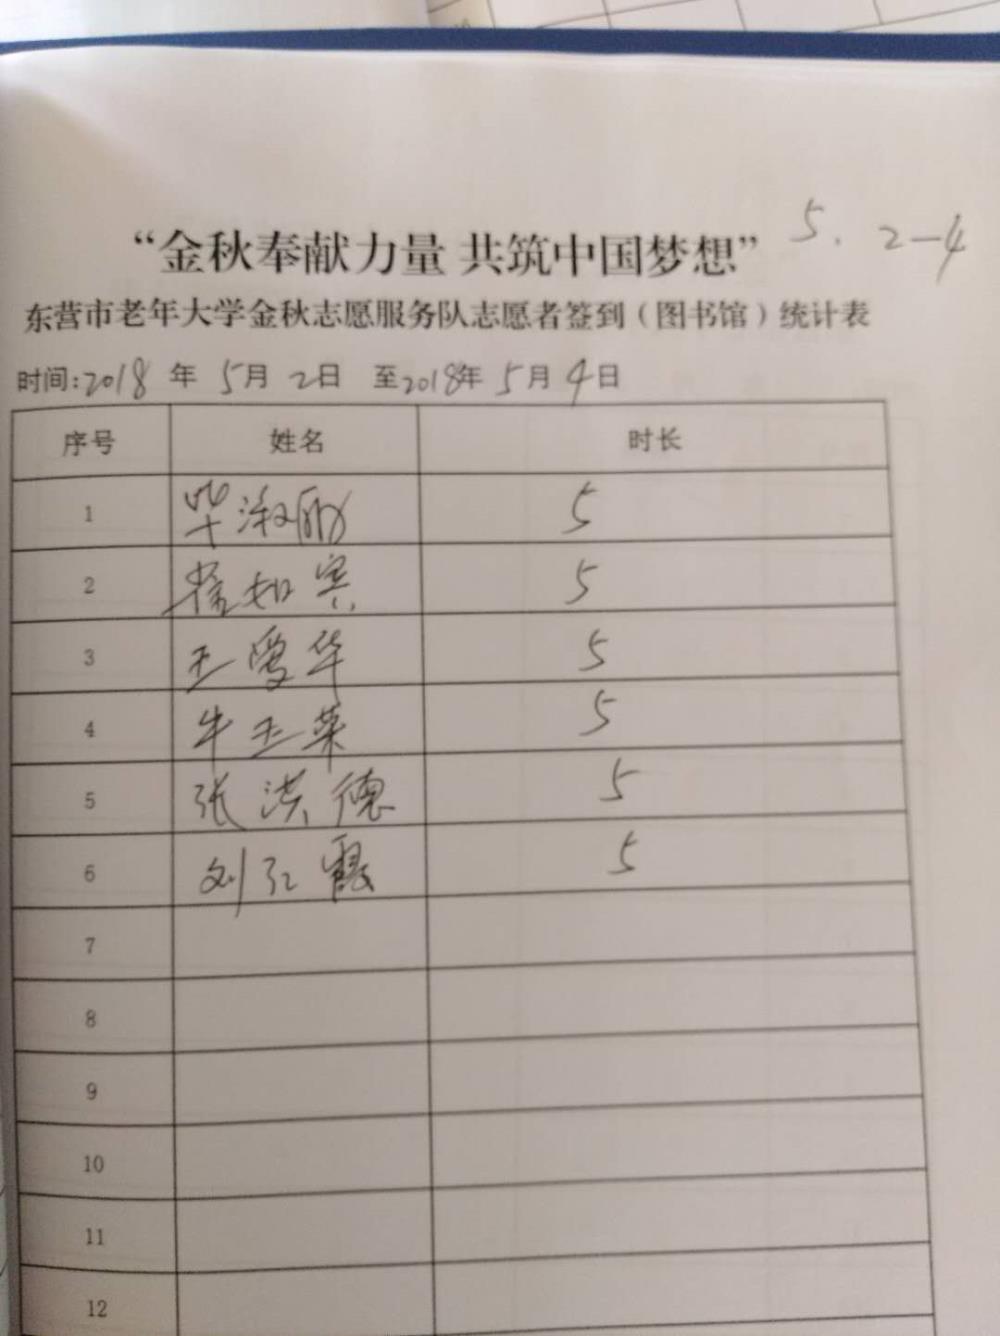 5. 2-4
“金秋奉献力量 共筑中国梦想”
东营市老年大学金秋志愿服务队志愿者签到（图书馆）统计表
时间:2018 年 5月 2日 至2018年 5月 4日
序号 姓名 时长
1 毕淑丽 5
2 徐如宾 5
3 王爱华 5
4 牛玉荣 5
5 张洪德 5
6 刘红霞 5
7
8
9
10
11
12